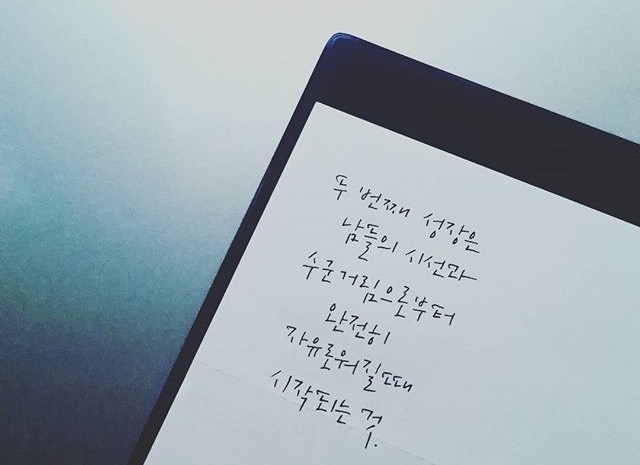 두 번째 성장은
남들의 시선과
수군거림으로부터
완전히
자유로워질때
시작되는 것.